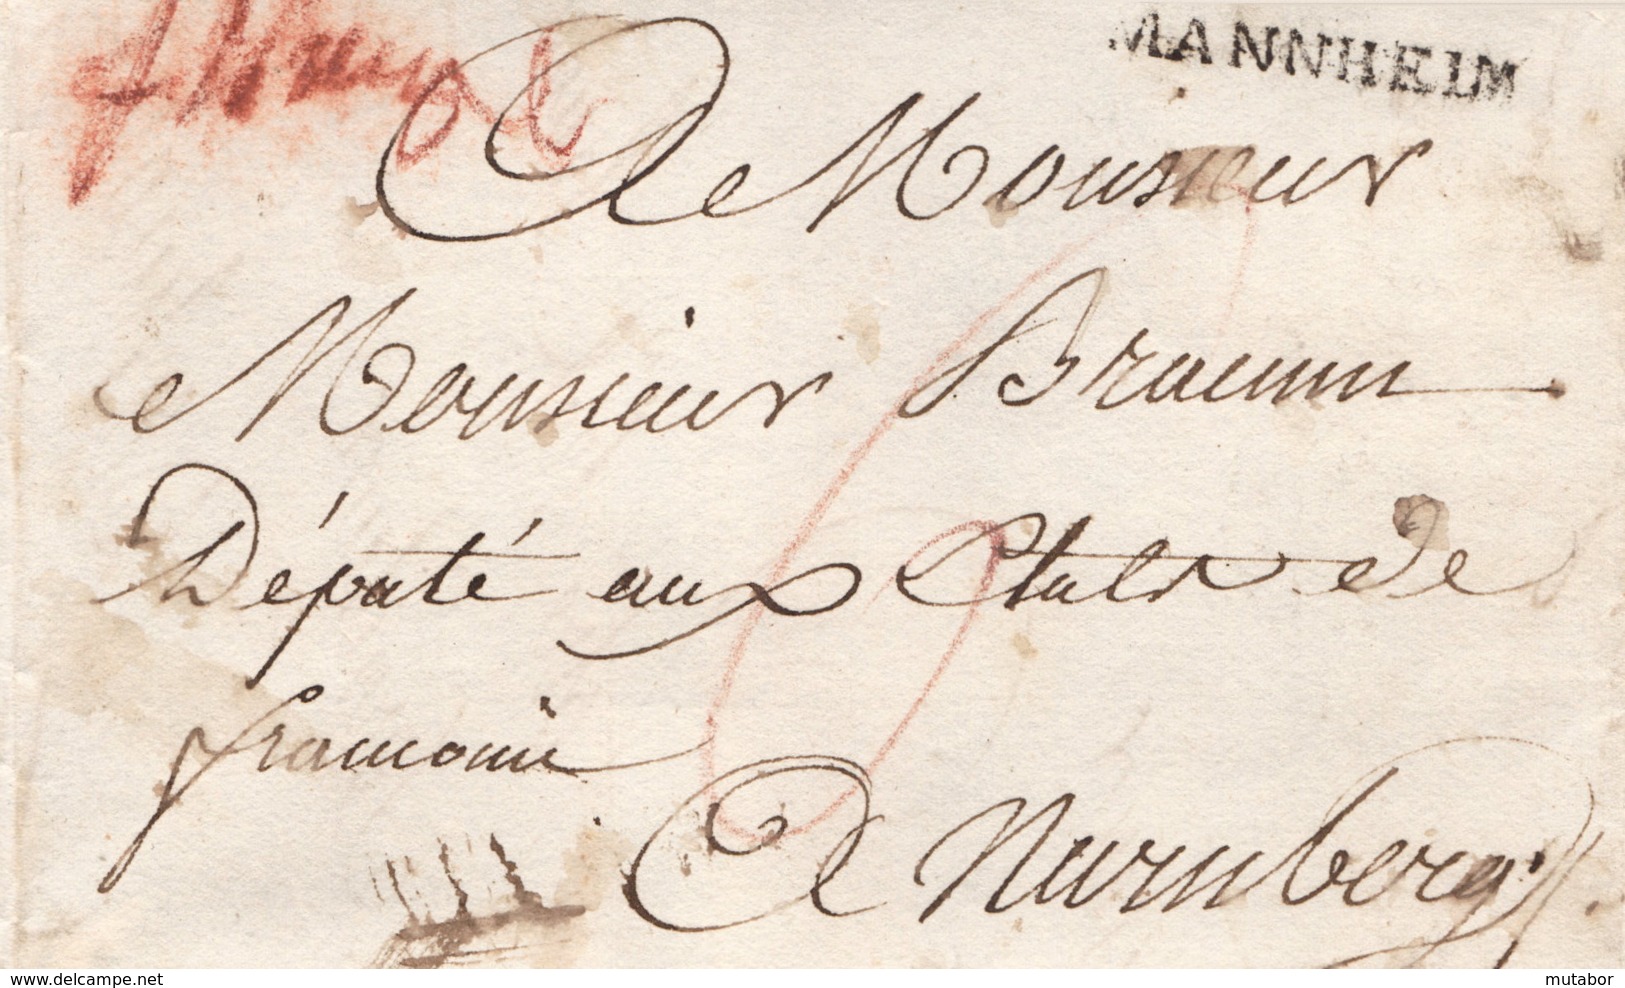 MANNHEIM
A Monsieur
Monsieur Braunn
Député aux Etats de
franconie
A Nurnberg
www.delcampe.net
mutabor